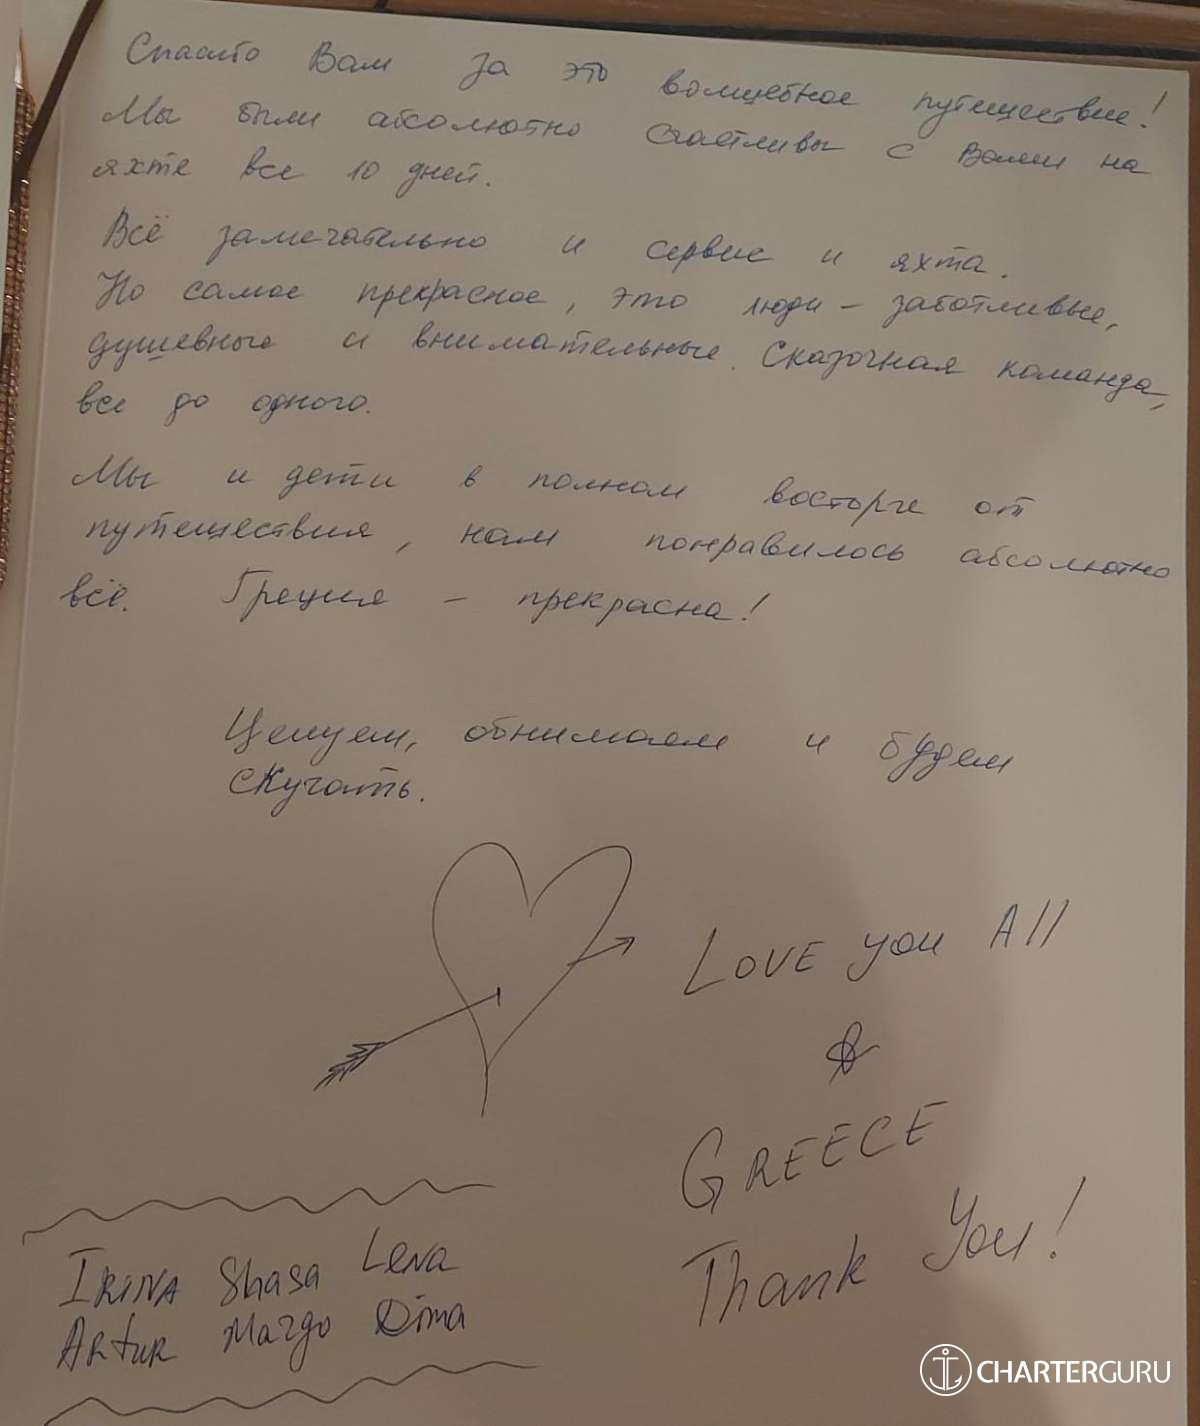 Спасибо Вам за это волшебное путешествие!
Мы были абсолютно счастливы с Вами на
яхте все 10 дней.
Всё замечательно и сервис и яхта.
Но самое прекрасное, это люди – заботливые,
душевные и внимательные. Сказочная команда,
все до одного.
Мы и дети в полном восторге от
путешествия, нам понравилось абсолютно
всё. Греция – прекрасна!
Целуем, обнимаем и будем
скучать.
LOVE you All
&
GREECE
Thank You!
IRINA Shasa Lena
Artur Margo Dima
CHARTERGURU